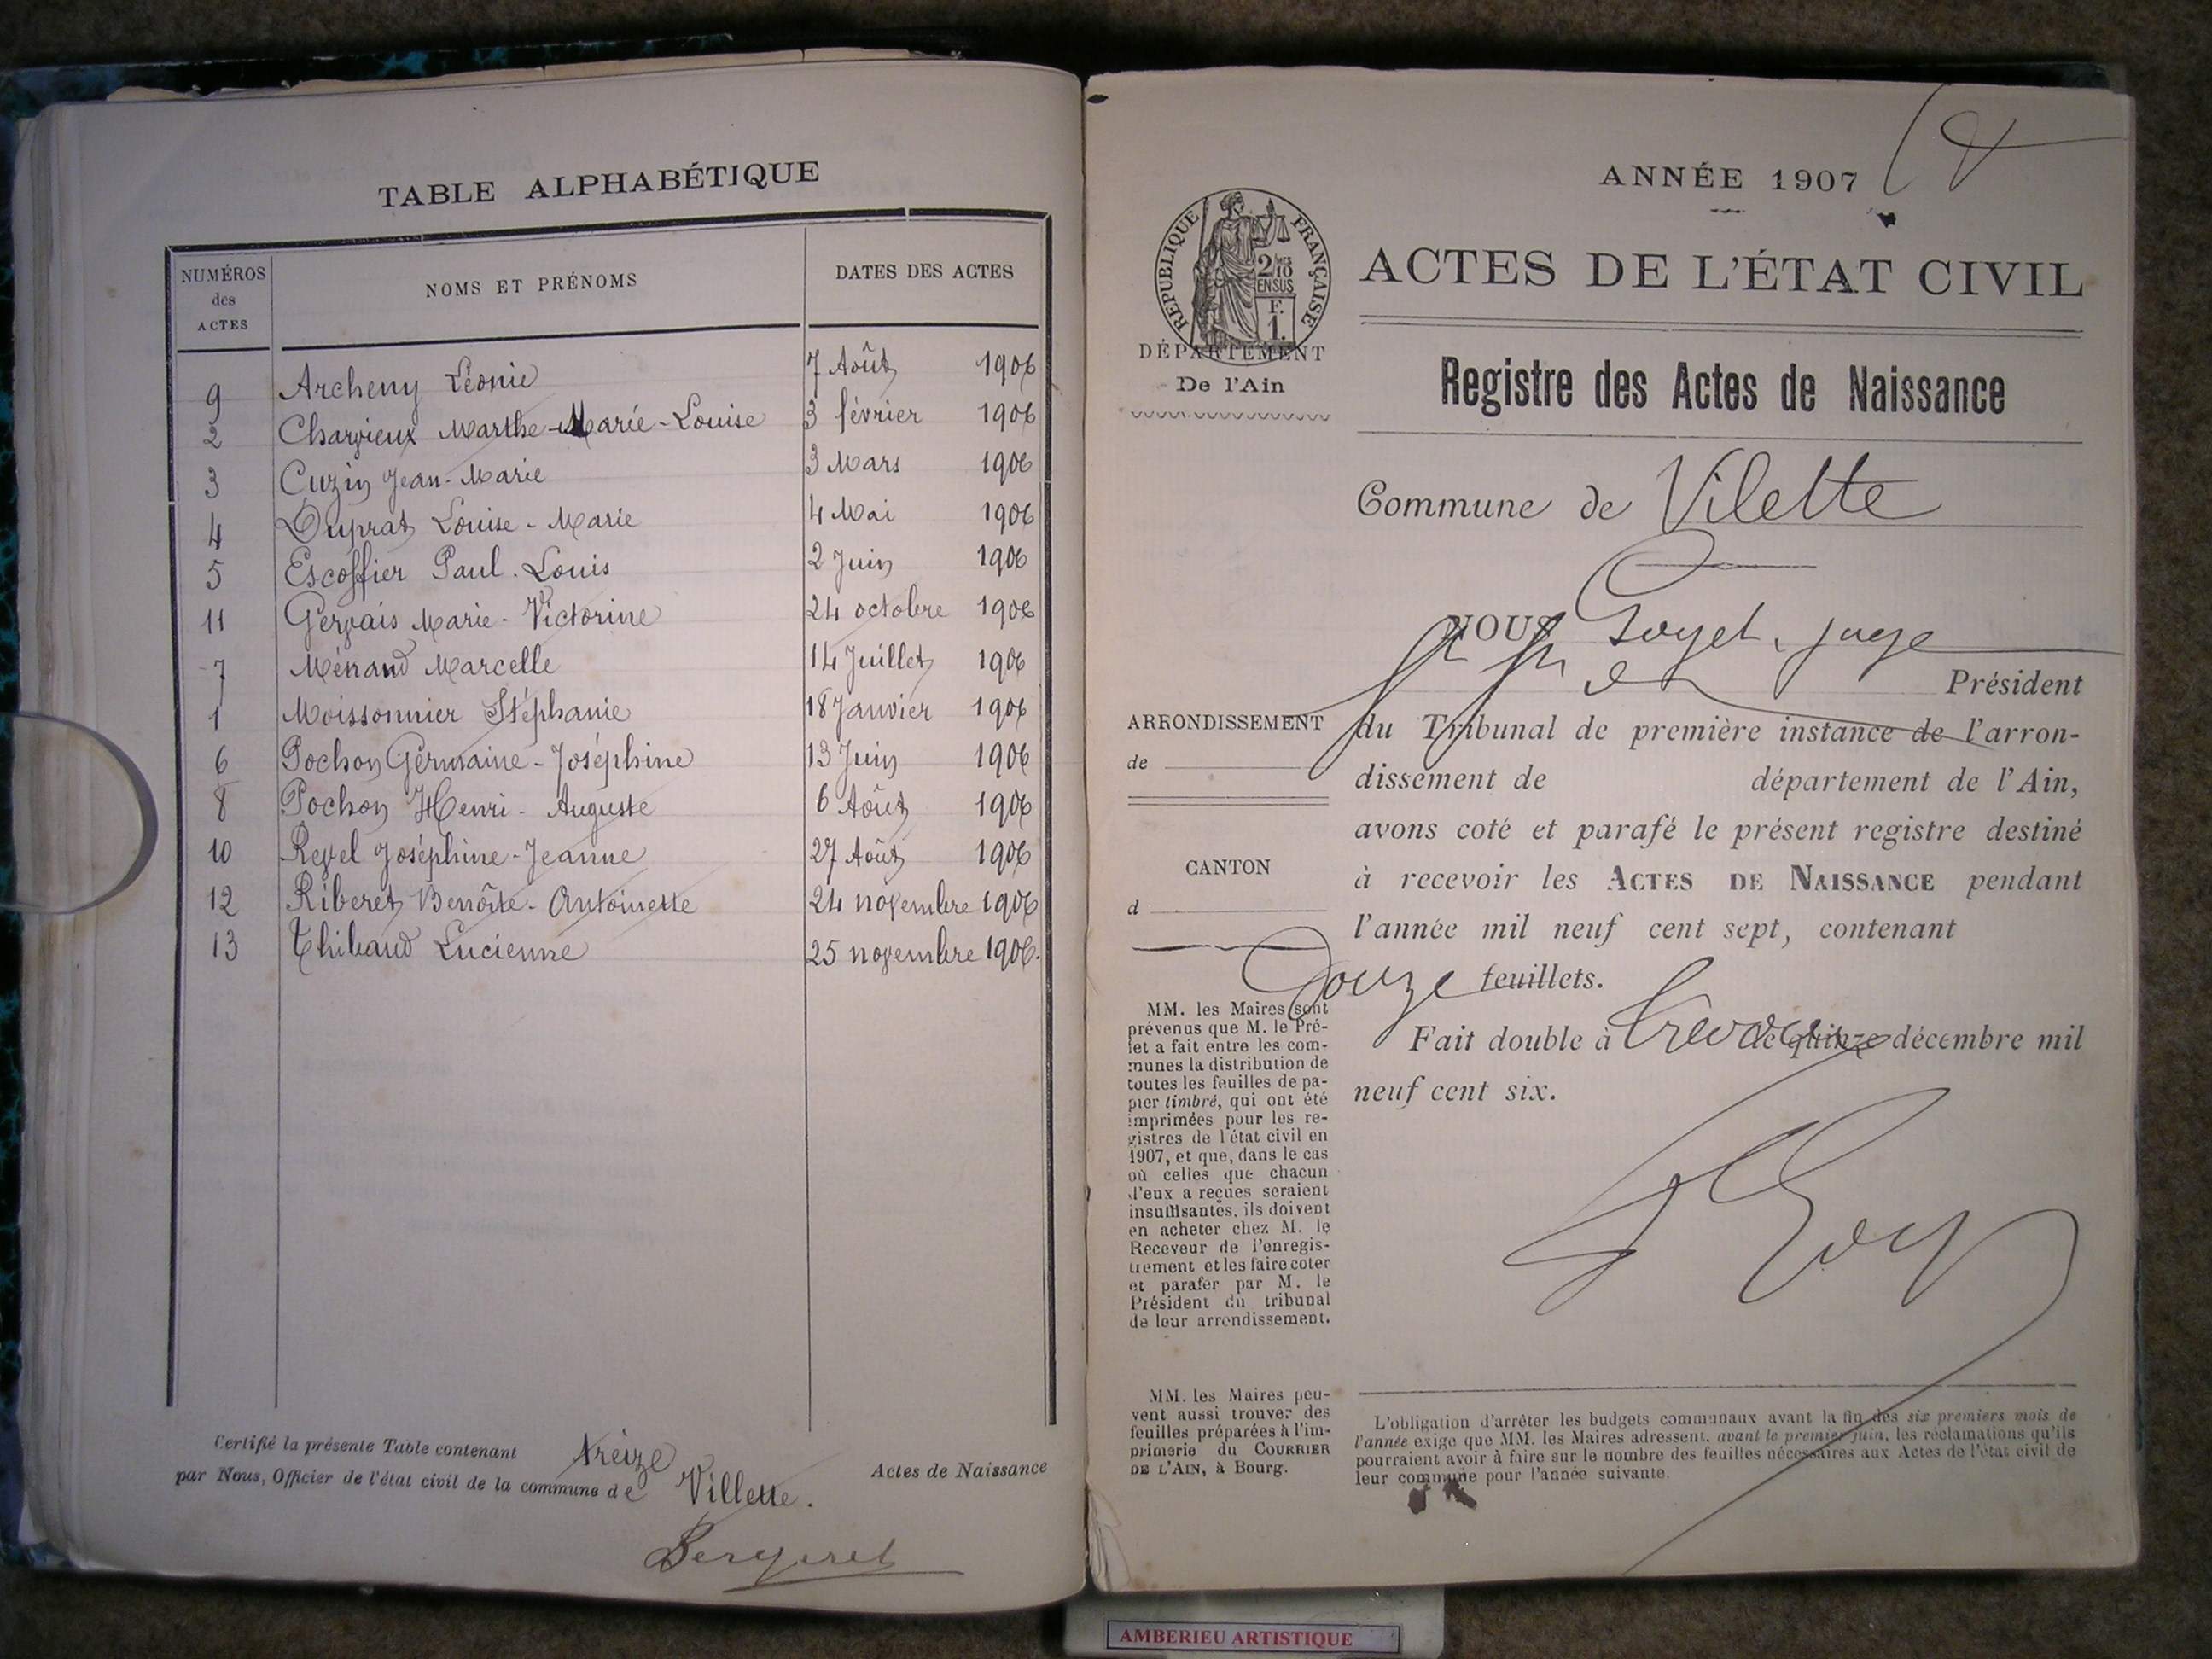 TABLE ALPHABÉTIQUE
NUMÉROS des ACTES
NOMS ET PRÉNOMS
DATES DES ACTES
9 Archeny Léonie 7 Août 1906
2 Charvieux Marthe-Marie-Louise 3 février 1906
3 Cuzin Jean-Marie 3 Mars 1906
4 Duprat Louise-Marie 4 Mai 1906
5 Escoffier Paul-Louis 2 Juin 1906
11 Gervais Marie-Victorine 24 octobre 1906
7 Ménand Marcelle 14 Juillet 1906
1 Moissonnier Stéphanie 18 Janvier 1906
6 Pochon Germaine-Joséphine 13 Juin 1906
8 Pochon Henri-Auguste 6 Août 1906
10 Revel Joséphine-Jeanne 27 Août 1906
12 Riberet Benôite-Antoinette 24 novembre 1906
13 Thibaud Lucienne 25 novembre 1906.
Certifié la présente Table contenant treize Actes de Naissance
par Nous, Officier de l'état civil de la commune de Villette.
Bergeret
ANNÉE 1907
RÉPUBLIQUE FRANÇAISE
2/10
EN SUS
F.
1.
ACTES DE L'ÉTAT CIVIL
DÉPARTEMENT
De l'Ain
Registre des Actes de Naissance
Commune de Vilette
NOUS Goyet, juge
Président
ARRONDISSEMENT
de
du Tribunal de première instance de l'arron-
dissement de département de l'Ain,
avons coté et parafé le présent registre destiné
CANTON
d
à recevoir les ACTES DE NAISSANCE pendant
l'année mil neuf cent sept, contenant
Douze feuillets.
Fait double à Trévoux le quinze décembre mil
neuf cent six.
MM. les Maires sont
prévenus que M. le Pré-
fet a fait entre les com-
munes la distribution de
toutes les feuilles de pa-
pier timbré, qui ont été
imprimées pour les re-
gistres de l'état civil en
1907, et que, dans le cas
où celles que chacun
d'eux a reçues seraient
insuffisantes, ils doivent
en acheter chez M. le
Receveur de l'enregis-
trement et les faire coter
et parafer par M. le
Président du tribunal
de leur arrondissement.
MM. les Maires peu-
vent aussi trouver des
feuilles préparées à l'im-
primerie du COURRIER
DE L'AIN, à Bourg.
L'obligation d'arrêter les budgets communaux avant la fin des six premiers mois de
l'année exige que MM. les Maires adressent, avant le premier juin, les réclamations qu'ils
pourraient avoir à faire sur le nombre des feuilles nécessaires aux Actes de l'état civil de
leur commune pour l'année suivante.
AMBERIEU ARTISTIQUE